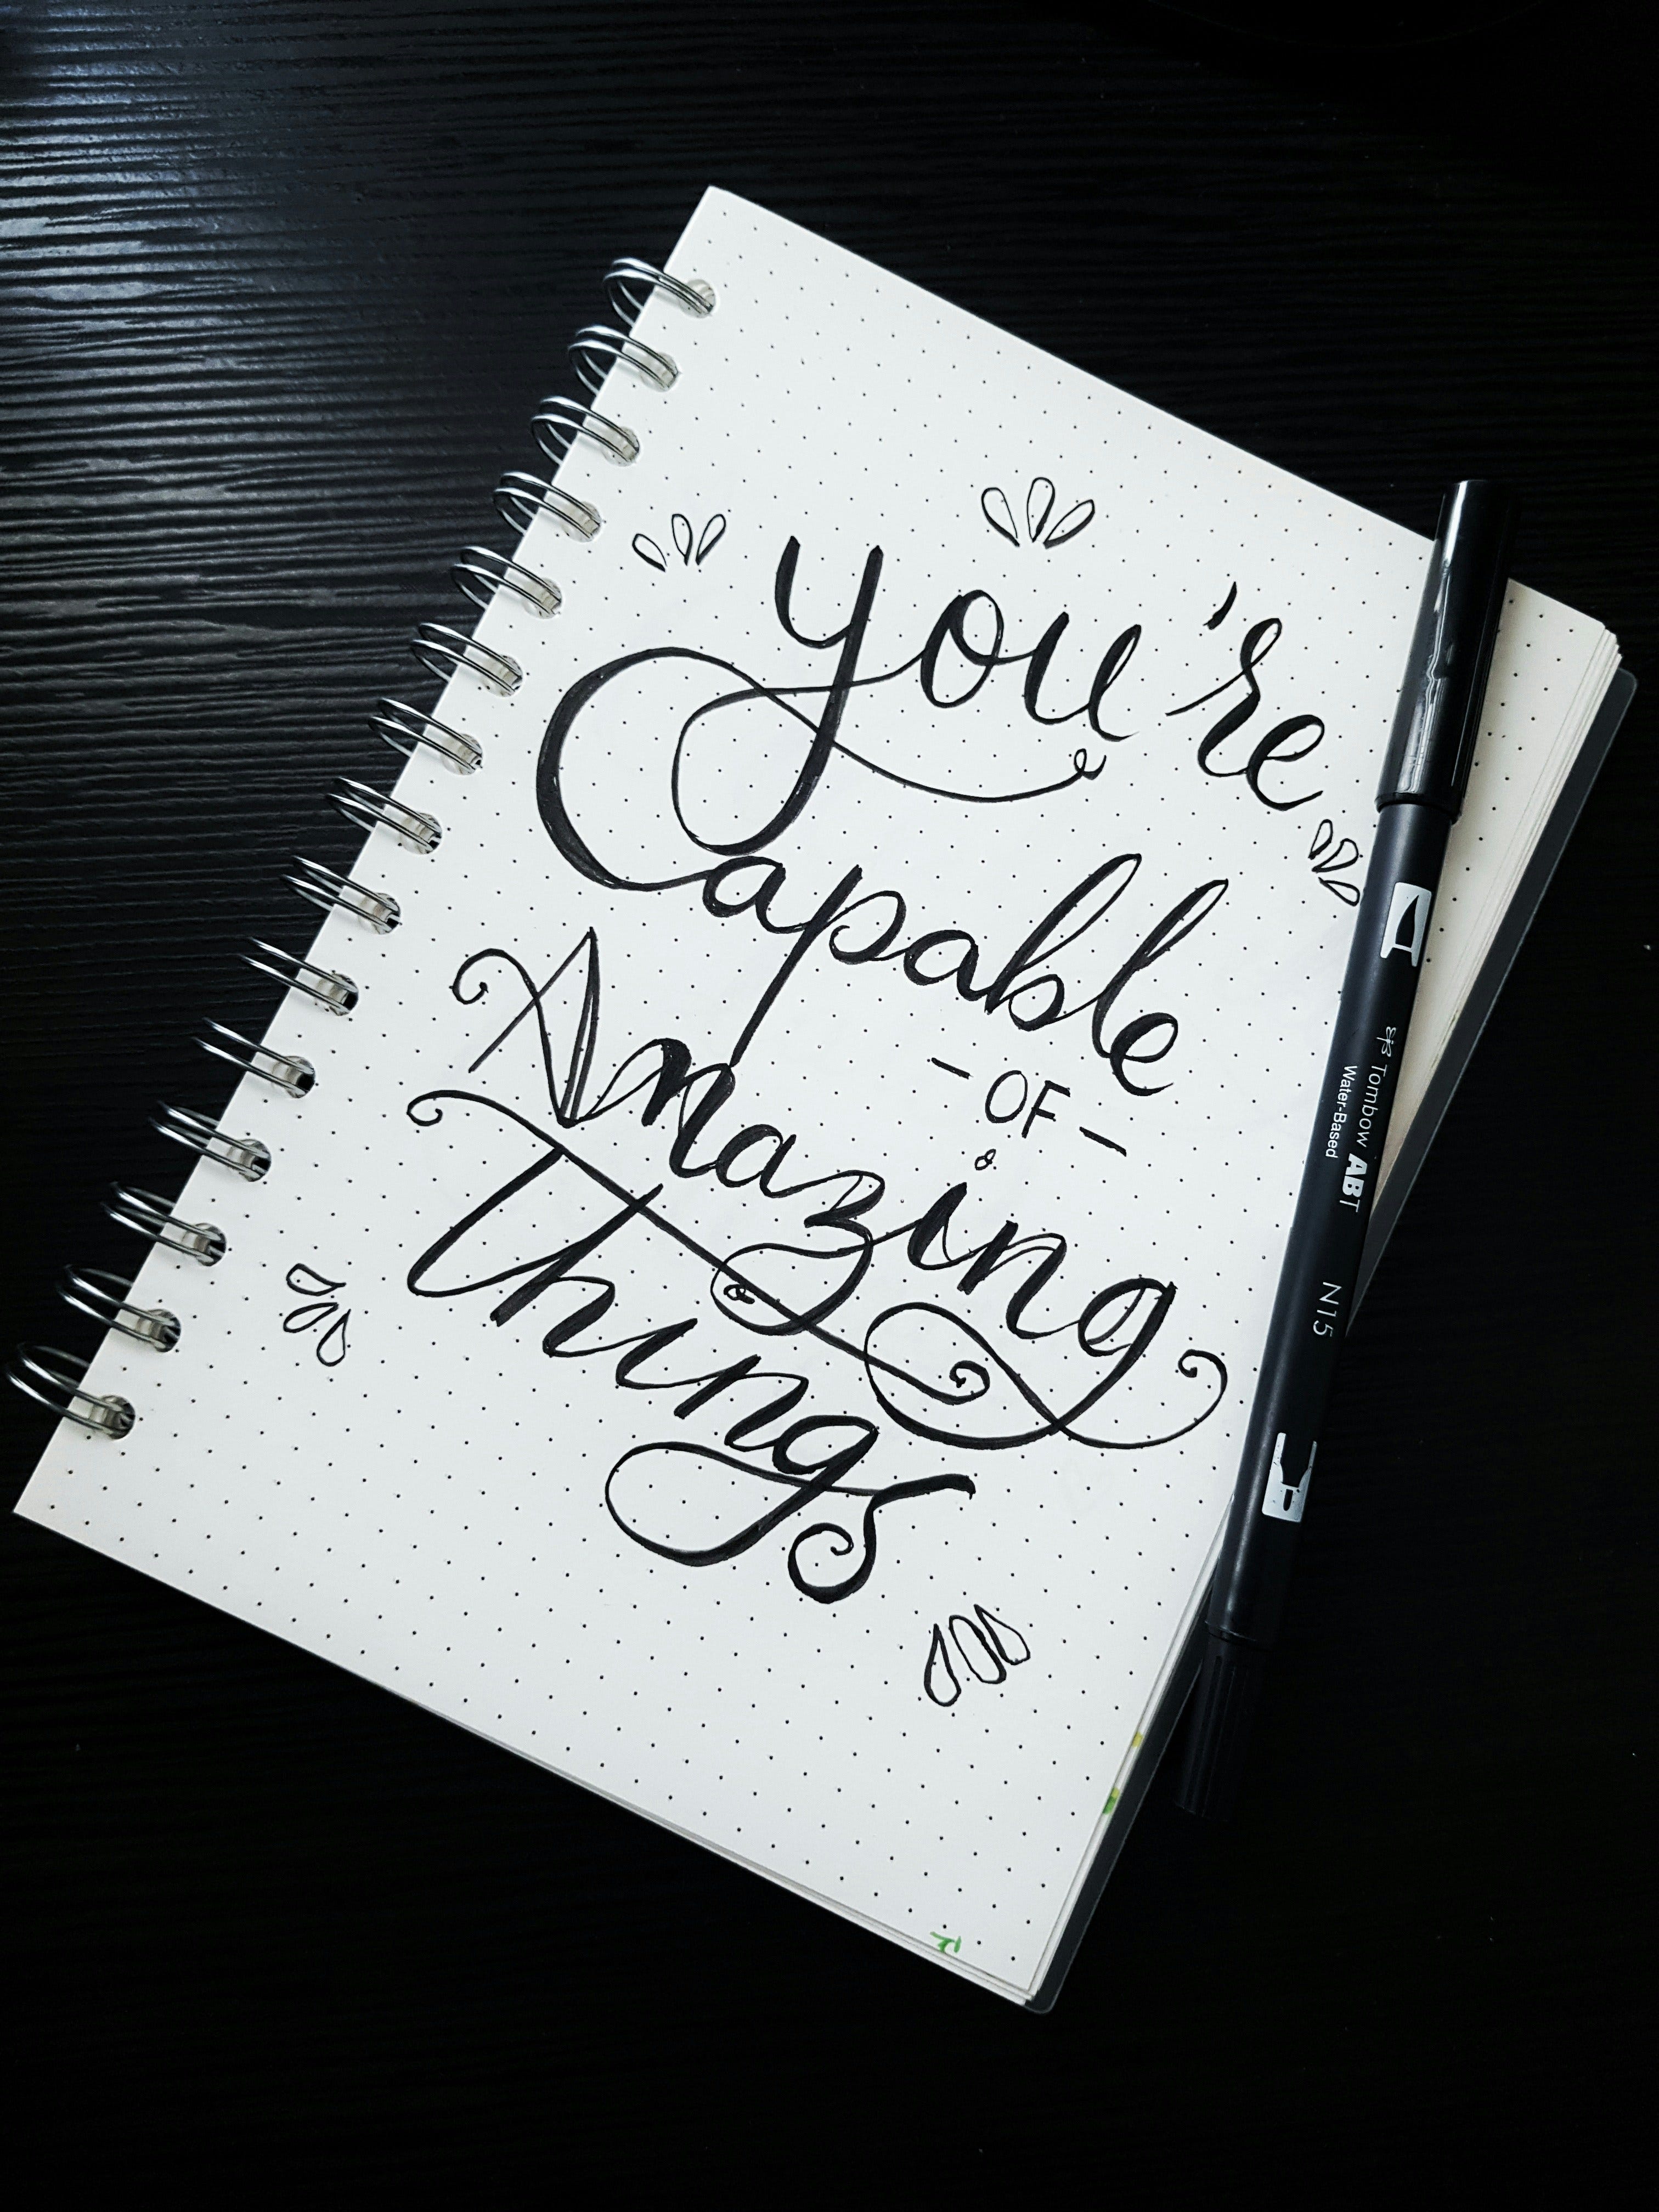 you're
Capable
- OF -
Amazing
Things
Tombow ABT N15
Water-Based